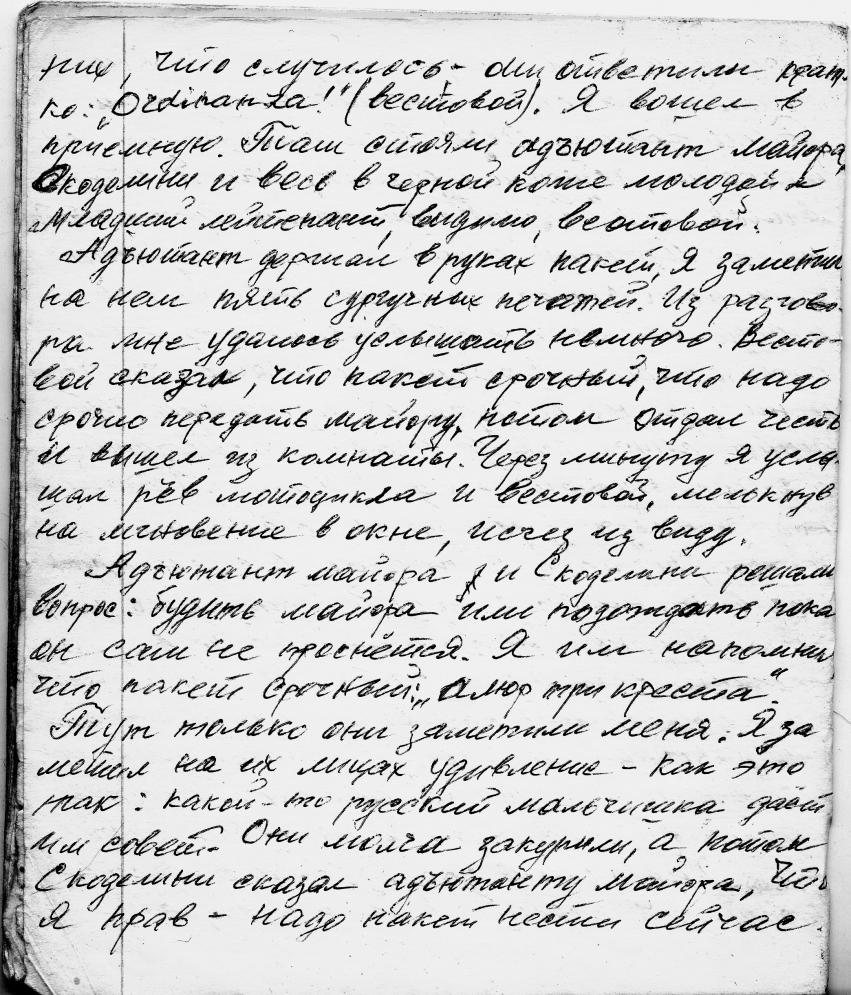 них, что случилось - они ответили крат-
ко: „Ordinanza!" (вестовой). Я вошел в
приёмную. Там стояли адъютант майора,
Скоделини и весь в черной коже молодой
младший лейтенант, видимо, вестовой.
Адъютант держал в руках пакет, я заметил
на нем пять сургучных печатей. Из разгово-
ра мне удалось услышать немного. Весто-
вой сказал, что пакет срочный, что надо
срочно передать майору, потом отдал честь
и вышел из комнаты. Через минуту я услы-
шал рёв мотоцикла и вестовой, мелькнув
на мгновение в окне, исчез из виду.
Адъютант майора и Скоделини решали
вопрос: будить майора или подождать пока
он сам не проснётся. Я им напомнил
что пакет срочный: „Алюр три креста".
Тут только они заметили меня. Я за
метил на их лицах удивление - как это
так: какой-то русский мальчишка даёт
им совет. Они молча закурили, а потом
Скоделини сказал адъютанту майора, что
я прав - надо пакет нести сейчас.